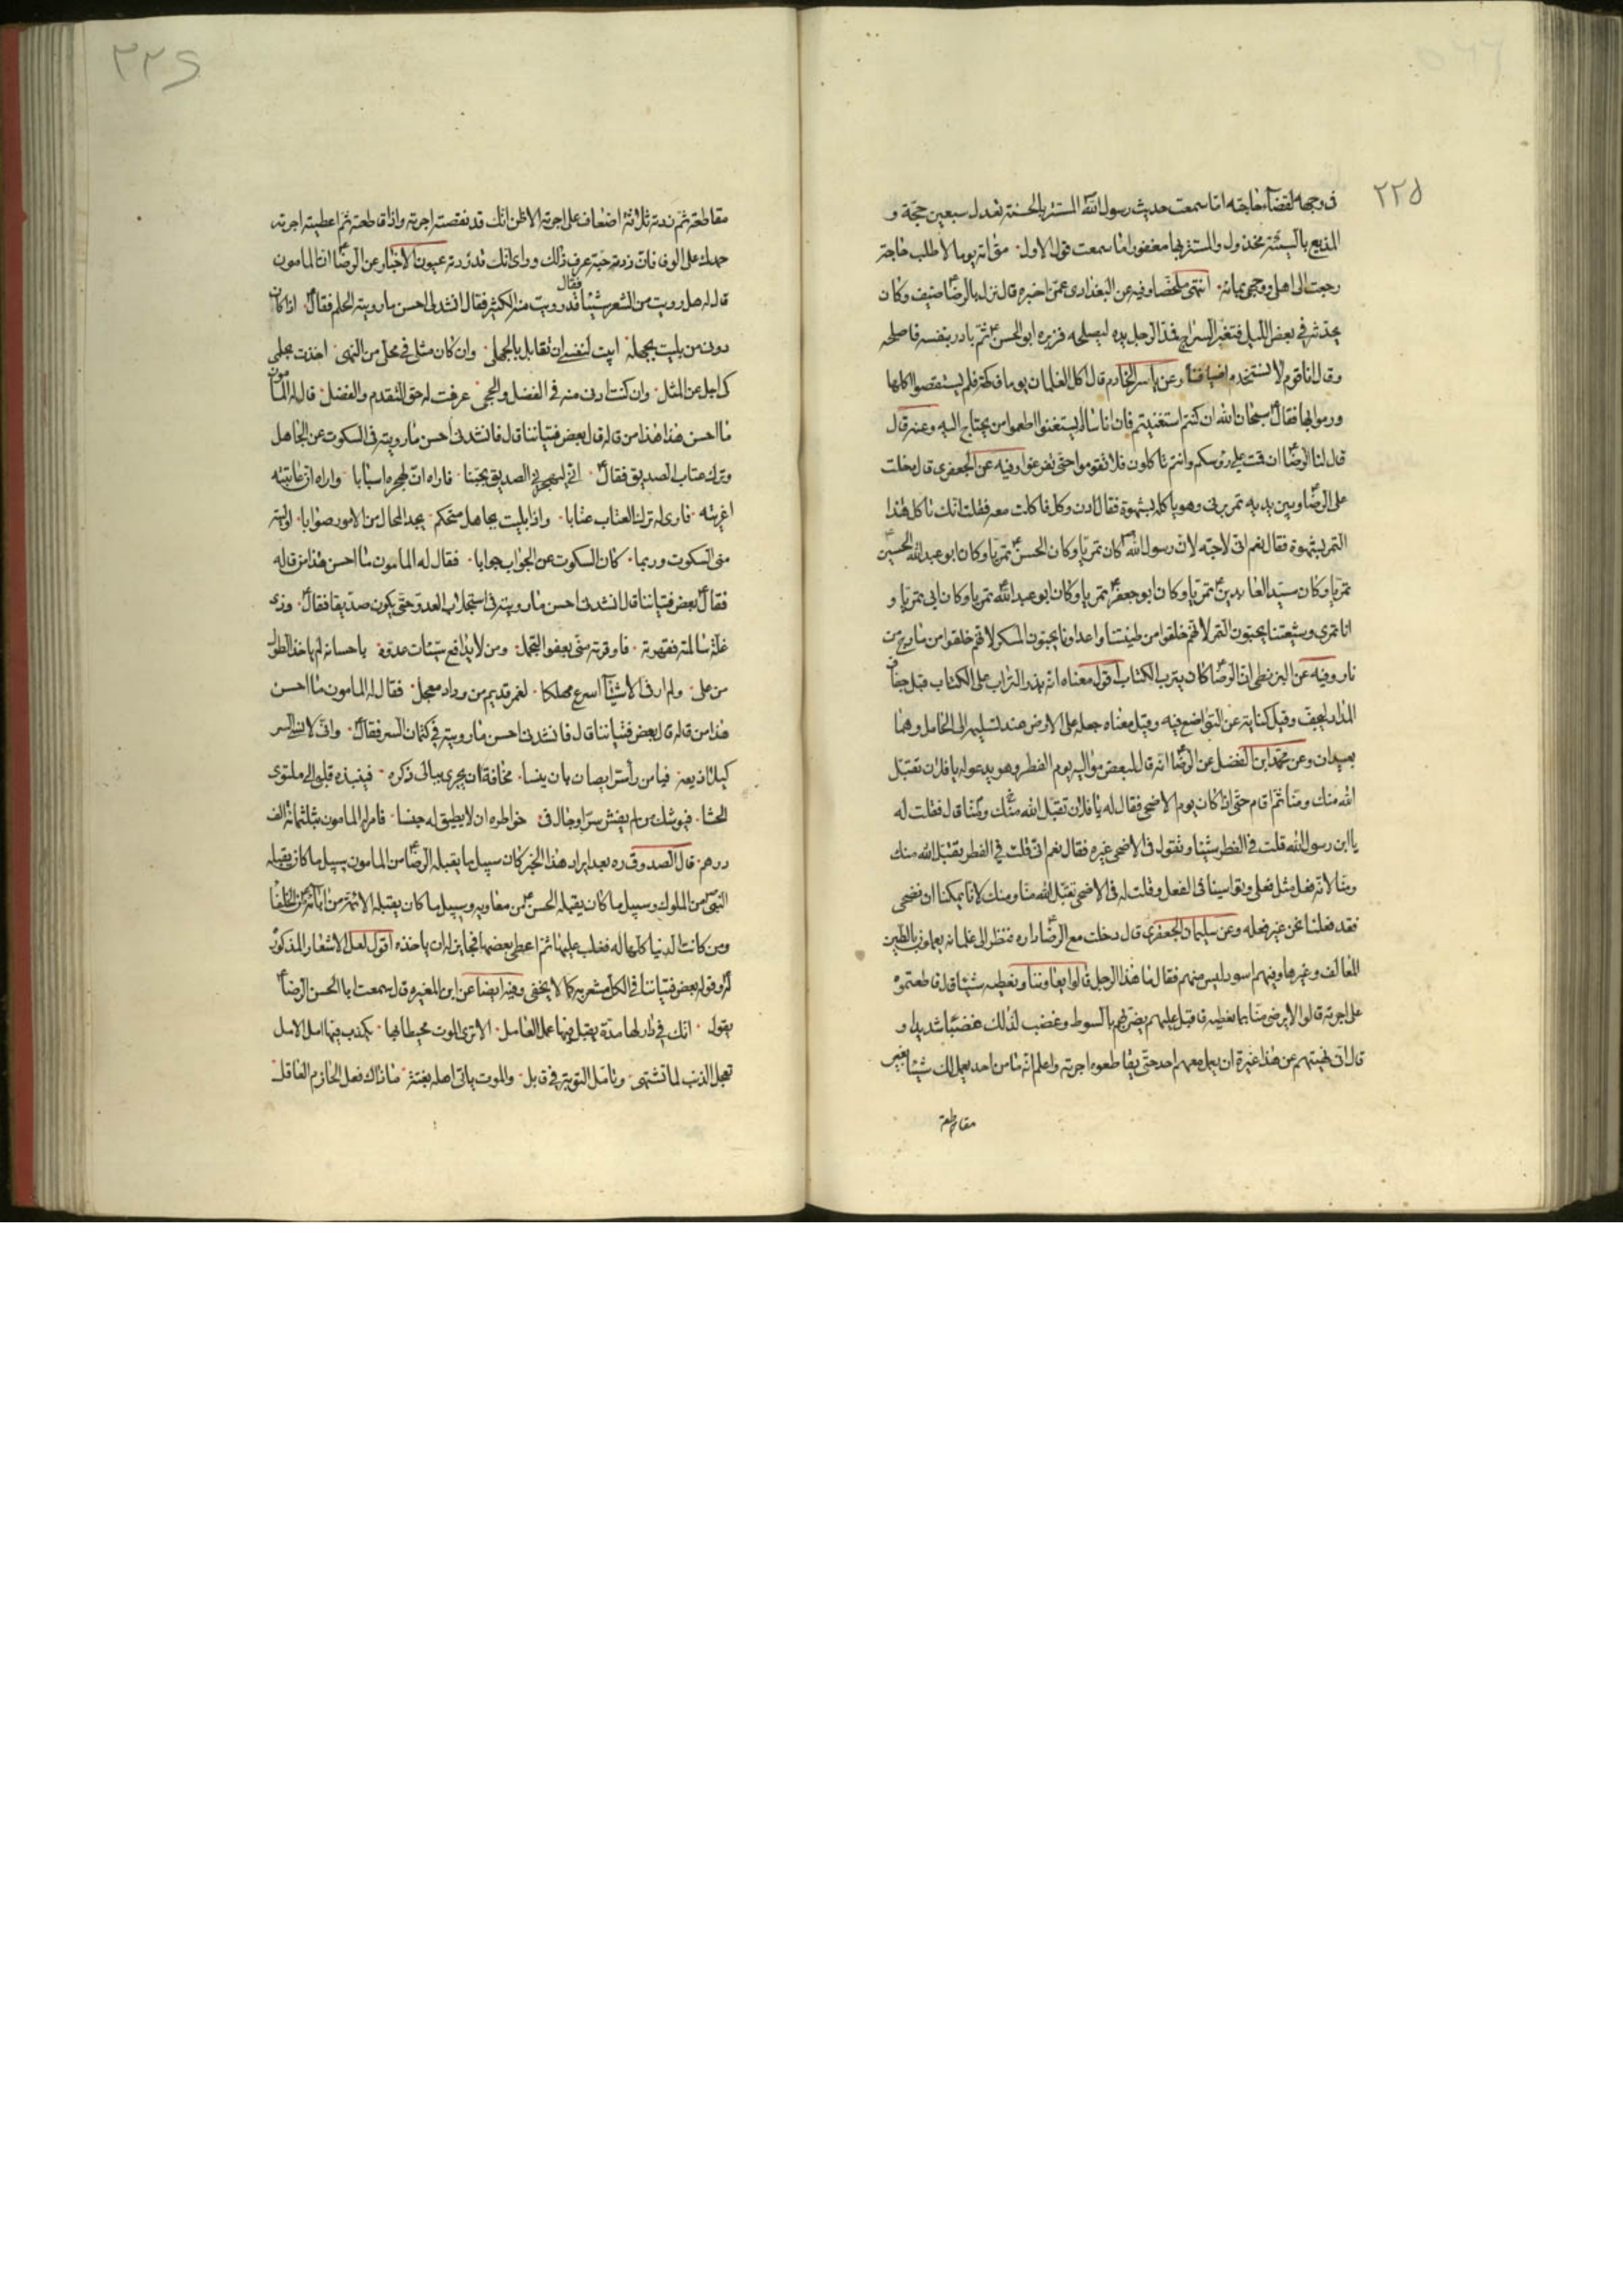 ٢٢٥
فى وجهه لقضآء حاجته اما سمعت حديث رسول الله المستتر بالحسنة تعدل سبعين حجّة و
المذيع بالسيّئة مخذول والمستتر بها مغفور اما سمعت قول الاول متى اته يوما لاطلب حاجة
رجعت الى اهلى ووجهى بمائه انتهى ملخصا وفيه عن البغدادى عمّن اخبره قال نزل بالرضا ضيف وكان
يحدّثه فى بعض الليل فتغيّر السراج فمدّ الرجل يده ليصلحه فزبره ابو الحسن ثم بادر بنفسه فاصلحه
وقال انا قوم لا نستخدم اضيافنا وعن ياسر الخادم قال اكل الغلمان يوما فاكهة فلم يستقصوا اكلها
ورموا بها فقال سبحان الله ان كنتم استغنيتم فان اناسا لم يستغنوا اطعموا من يحتاج اليه وعنه قال
قال لنا الرضا ان قمت على رؤسكم وانتم تاكلون فلا تقوموا حتى تفرغوا وفيه عن الجعفرى قال دخلت
على الرضا وبين يديه تمر برنى وهو ياكله بشهوة فقال ادن وكل فاكلت معه فقلت انك تاكل هذا
التمر بشهوة فقال نعم انى لاحبه لان رسول الله كان تمريّا وكان الحسن تمريّا وكان ابو عبد الله الحسين
تمريّا وكان سيّد العابدين تمريّا وكان ابو جعفر تمريّا وكان ابو عبد الله تمريا وكان ابى تمريّا و
انا تمرى وشيعتنا يحبّون التمر لانهم خلقوا من طينتنا واعداؤنا يحبّون المسكر لانهم خلقوا من مارج من
نار وفيه عن البزنطى ان الرضا كان يترب الكتاب اقول معناه انه يذر التراب على الكتاب قبل جفاف
المداد ليجفّ وقيل كناية عن التواضع فيه وقيل معناه جعله على الارض عند تسليمه الى الحامل وهما
بعيدان وعن محمد ابن الفضل عن الرضا انه قال لبعض مواليه يوم الفطر وهو يدعو له يا فلان تقبّل
الله منك ومنّا ثم اقام حتى اذا كان يوم الاضحى فقال له يا فلان تقبّل الله منّا ومنك قال فقلت له
يا ابن رسول الله قلت فى الفطر شيئا وتقول فى الاضحى غيره فقال نعم انى قلت فى الفطر تقبّل الله منك
ومنّا لانه فعل مثل فعلى وتواسينا فى الفعل وقلت له فى الاضحى تقبّل الله منّا ومنك لانا يمكننا ان نضحى
فقد فعلنا نحن غير فعله وعن سليمان الجعفرى قال دخلت مع الرضا داره فنظر الى غلمانه يعملون بالطين
المعالف وغيرها وفيهم اسود ليس منهم فقال ما هذا الرجل قالوا يعاوننا ونعطيه شيئا قال قاطعتموه
على اجرته قالوا لا يرضى منّا بما نعطيه فاقبل عليهم يضربهم بالسوط وغضب لذلك غضبًا شديدا و
قال انى نهيتهم عن هذا غير مرة ان يعمل معهم احد حتى يقاطعوه اجرته واعلم انه ما من احد يعمل لك شيئا بغير
مقاطعة
٢٢٦
مقاطعة ثم زدته ثلاثة اضعاف على اجرته الا ظن انك قد نقصته اجرته واذا قاطعته ثم اعطيته اجرته
حمدك على الوفا فان زدته حبّة عرف ذلك وراى انك قد زدته عيون الاخبار عن الرضا ان المامون
قال له هل رويت من الشعر شيئا فقال قد رويت منه الكثير فقال انشدنى احسن ما رويته الحلم فقال اذا كان
دونى من بليت بجهله ابيت لنفسى ان تقابل بالجهل وان كان مثلى فى محلى من النهى اخذت بحلمى
كى اجل عن المثل وان كنت ادنى منه فى الفضل والحجى عرفت له حق التقدم والفضل قال له المامون
ما احسن هذا هذا من قاله قال بعض فتياننا قال فانشدنى احسن ما رويته فى السكوت عن الجاهل
وترك عتاب الصديق فقال انى ليهجرنى الصديق تجنبا فاراه ان لهجره اسبابا واراه ان عاتبته
اغريته فارى له ترك العتاب عتابا واذا بليت بجاهل متحكم يجد المحال من الامور صوابا اوليته
منى السكوت وربما كان السكوت عن الجواب جوابا فقال له المامون ما احسن هذا من قاله
فقال بعض فتياننا قال انشدنى احسن ما رويته فى استجلاب العدو حتى يكون صديقا فقال وذى
غلة سالمته فقهرته فاوقرته منى بعفو التجمل ومن لا يدافع سيئات عدوه باحسانه لم ياخذ الطول
من على ولم ار فى الاشيآء اسرع مهلكا لغمر قديم من وداد معجل فقال له المامون ما احسن
هذا من قاله قال بعض فتياننا قال فانشدنى احسن ما رويته فى كتمان السر فقال وانى لانسى السر
كيلا اذيعه فيا من راى سرا يصان بان ينسا مخافة ان يجرى ببالى ذكره فينبذه قلبى الى ملتوى
الحشا فيوشك من لم يفش سرا وجال فى خواطره ان لا يطيق له حبسا فامر له المامون بثلثمائة الف
درهم قال الصدوق ره بعد ايراد هذا الخبر كان سبيل ما يقبله الرضا من المامون سبيل ما كان يقبله
النبى من الملوك وسبيل ما كان يقبله الحسن من معاويه وسبيل ما كان يقبله الائمة من ابائه من الخلفا
ومن كانت الدنيا كلها له فغلب عليها ثم اعطى بعضها فجايز له ان ياخذه اقول لعل الاشعار المذكورة
له وقوله بعض فتياننا فى الكل مشعر به كما لا يخفى وفيه ايضا عن ابن المغيره قال سمعت ابا الحسن الرضا
يقول انك فى دار لها مدة يقبل فيها عمل العامل الا ترى الموت محيطا بها يكذب فيها امل الامل
تعجل الذنب لما تشتهى وتامل التوبة فى قابل والموت ياتى اهله بغتة ما ذاك فعل الحازم العاقل